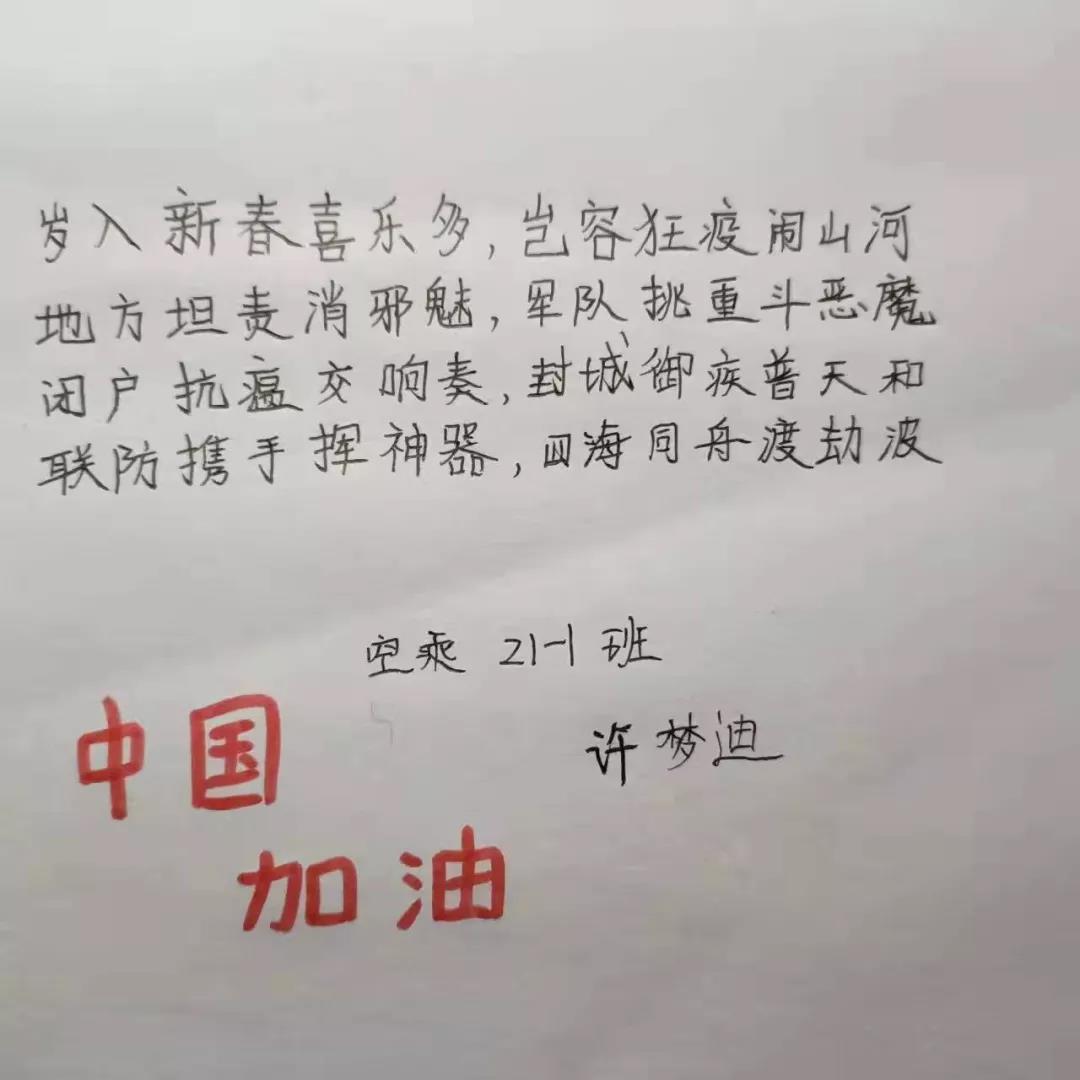 岁入新春喜乐多,岂容狂疫闹山河
地方坦责消邪魅,军队挑重斗恶魔
闭户抗瘟交响奏,封城御疾普天和
联防携手挥神器,四海同舟渡劫波
空乘 21-1 班
许梦迪
中国
加油